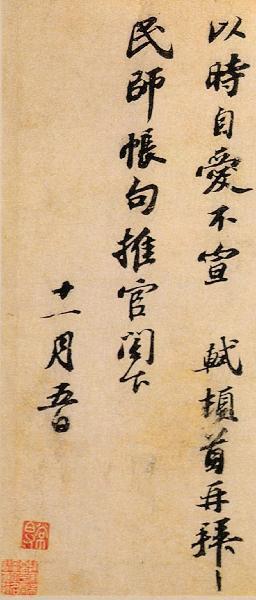 以時自愛不宣 軾頓首再拜
民師帳句推官閤下
十一月五日